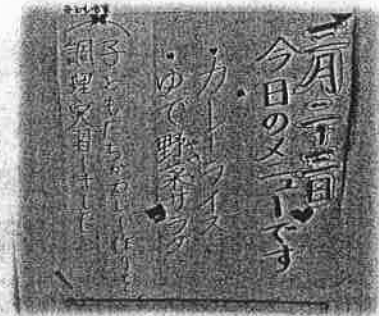 二月二十二日
今日のメニューです
・カレーライス
・ゆで野菜サラダ
(子どもたちがカレー作りを
調理実習しました